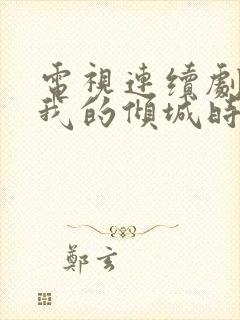 電視連續劇
我的傾城時
鄭玄